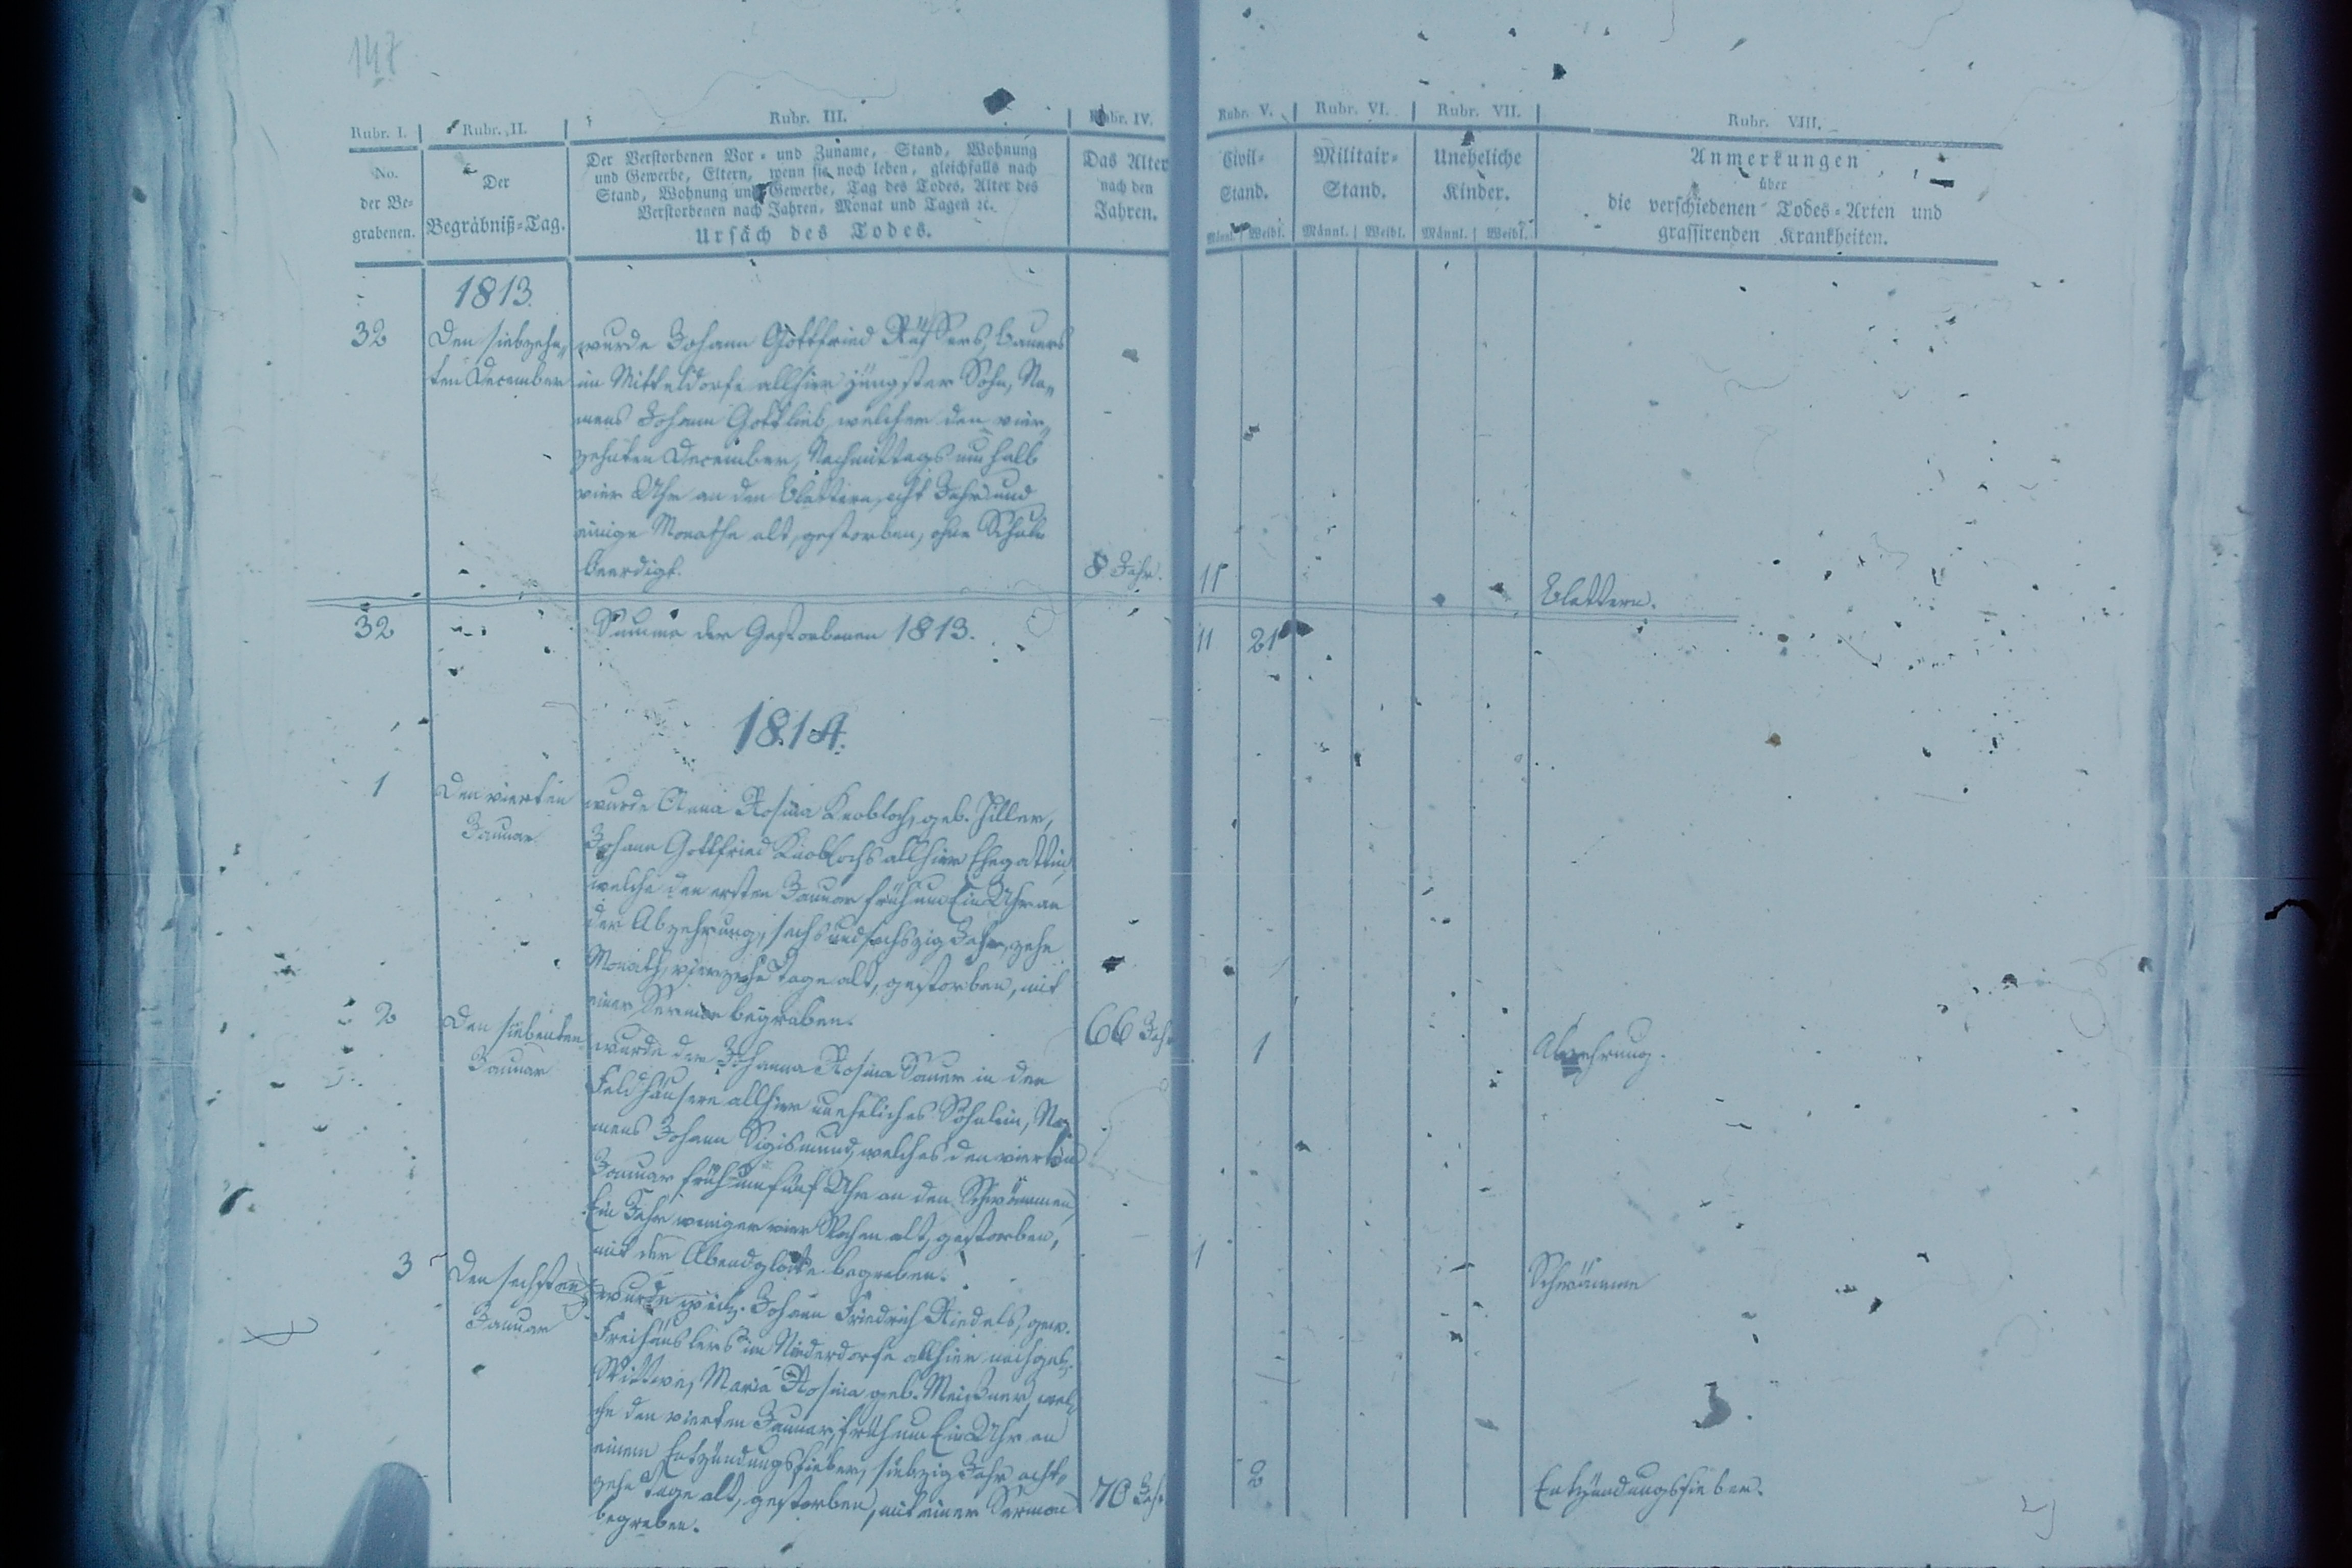 147
Rubr. I. Rubr. II. Rubr. III. Rubr. IV. Rubr. V. Rubr. VI. Rubr. VII. Rubr. VIII.
No.
der Be-
grabenen.
Der
Begräbniß-Tag.
Der Verstorbenen Vor- und Zuname, Stand, Wohnung
und Gewerbe, Eltern, wenn sie noch leben, gleichfalls nach
Stand, Wohnung und Gewerbe, Tag des Todes, Alter des
Verstorbenen nach Jahren, Monat und Tagen ꝛc.
Ursach des Todes.
Das Alter
nach den
Jahren.
Civil-
Stand.
Männl. Weibl.
Militair-
Stand.
Männl. Weibl.
Uneheliche
Kinder.
Männl. Weibl.
Anmerkungen
über
die verschiedenen Todes-Arten und
grassirenden Krankheiten.
1813.
32
Den siebzehn-
ten December
wurde Johann Gottfried Bauers
im Mitteldorfe allhier jüngster Sohn, Na-
mens Johann Gottlieb, welcher den vier-
zehnten December, Nachmittags um halb
vier Uhr an den Blattern, acht Jahr und
einige Monathe alt, gestorben, ohne Schule
beerdigt.
8 Jahr.
11
Blattern.
32 Summa der Gestorbenen 1813. 11 21
1814.
1
Den vierten
Januar
wurde Anna Rosina Knobloch, geb. Hiller,
Johann Gottfried Knoblochs allhier Ehegattin,
welche den ersten Januar früh um Ein Uhr an
der Abzehrung, sechs und sechszig Jahr, zehn
Monath, vierzehn Tage alt, gestorben, mit
einer Sermon begraben.
66 Jahr
1
Abzehrung.
2
Den siebenten
Januar
wurde der Johanna Rosina Sauer in den
Feldhäusern allhier uneheliches Söhnlein, Na-
mens Johann Sigismund, welches den vierten
Januar früh um fünf Uhr an den Schwämmen,
Ein Jahr weniger vier Wochen alt, gestorben,
mit der Abendglocke begraben.
1
Schwämme
3
Den sechsten
Januar
wurde weil. Johann Friedrich Riedels, gew.
Freihäuslers im Niederdorfe allhier nachgel.
Wittwe, Maria Rosina geb. Meißner, wel-
che den vierten Januar, früh um Ein Uhr an
einem Entzündungsfieber, siebzig Jahr acht-
zehn Tage alt, gestorben, mit einer Sermon
begraben.
70 Jahr
2
Entzündungsfieber.